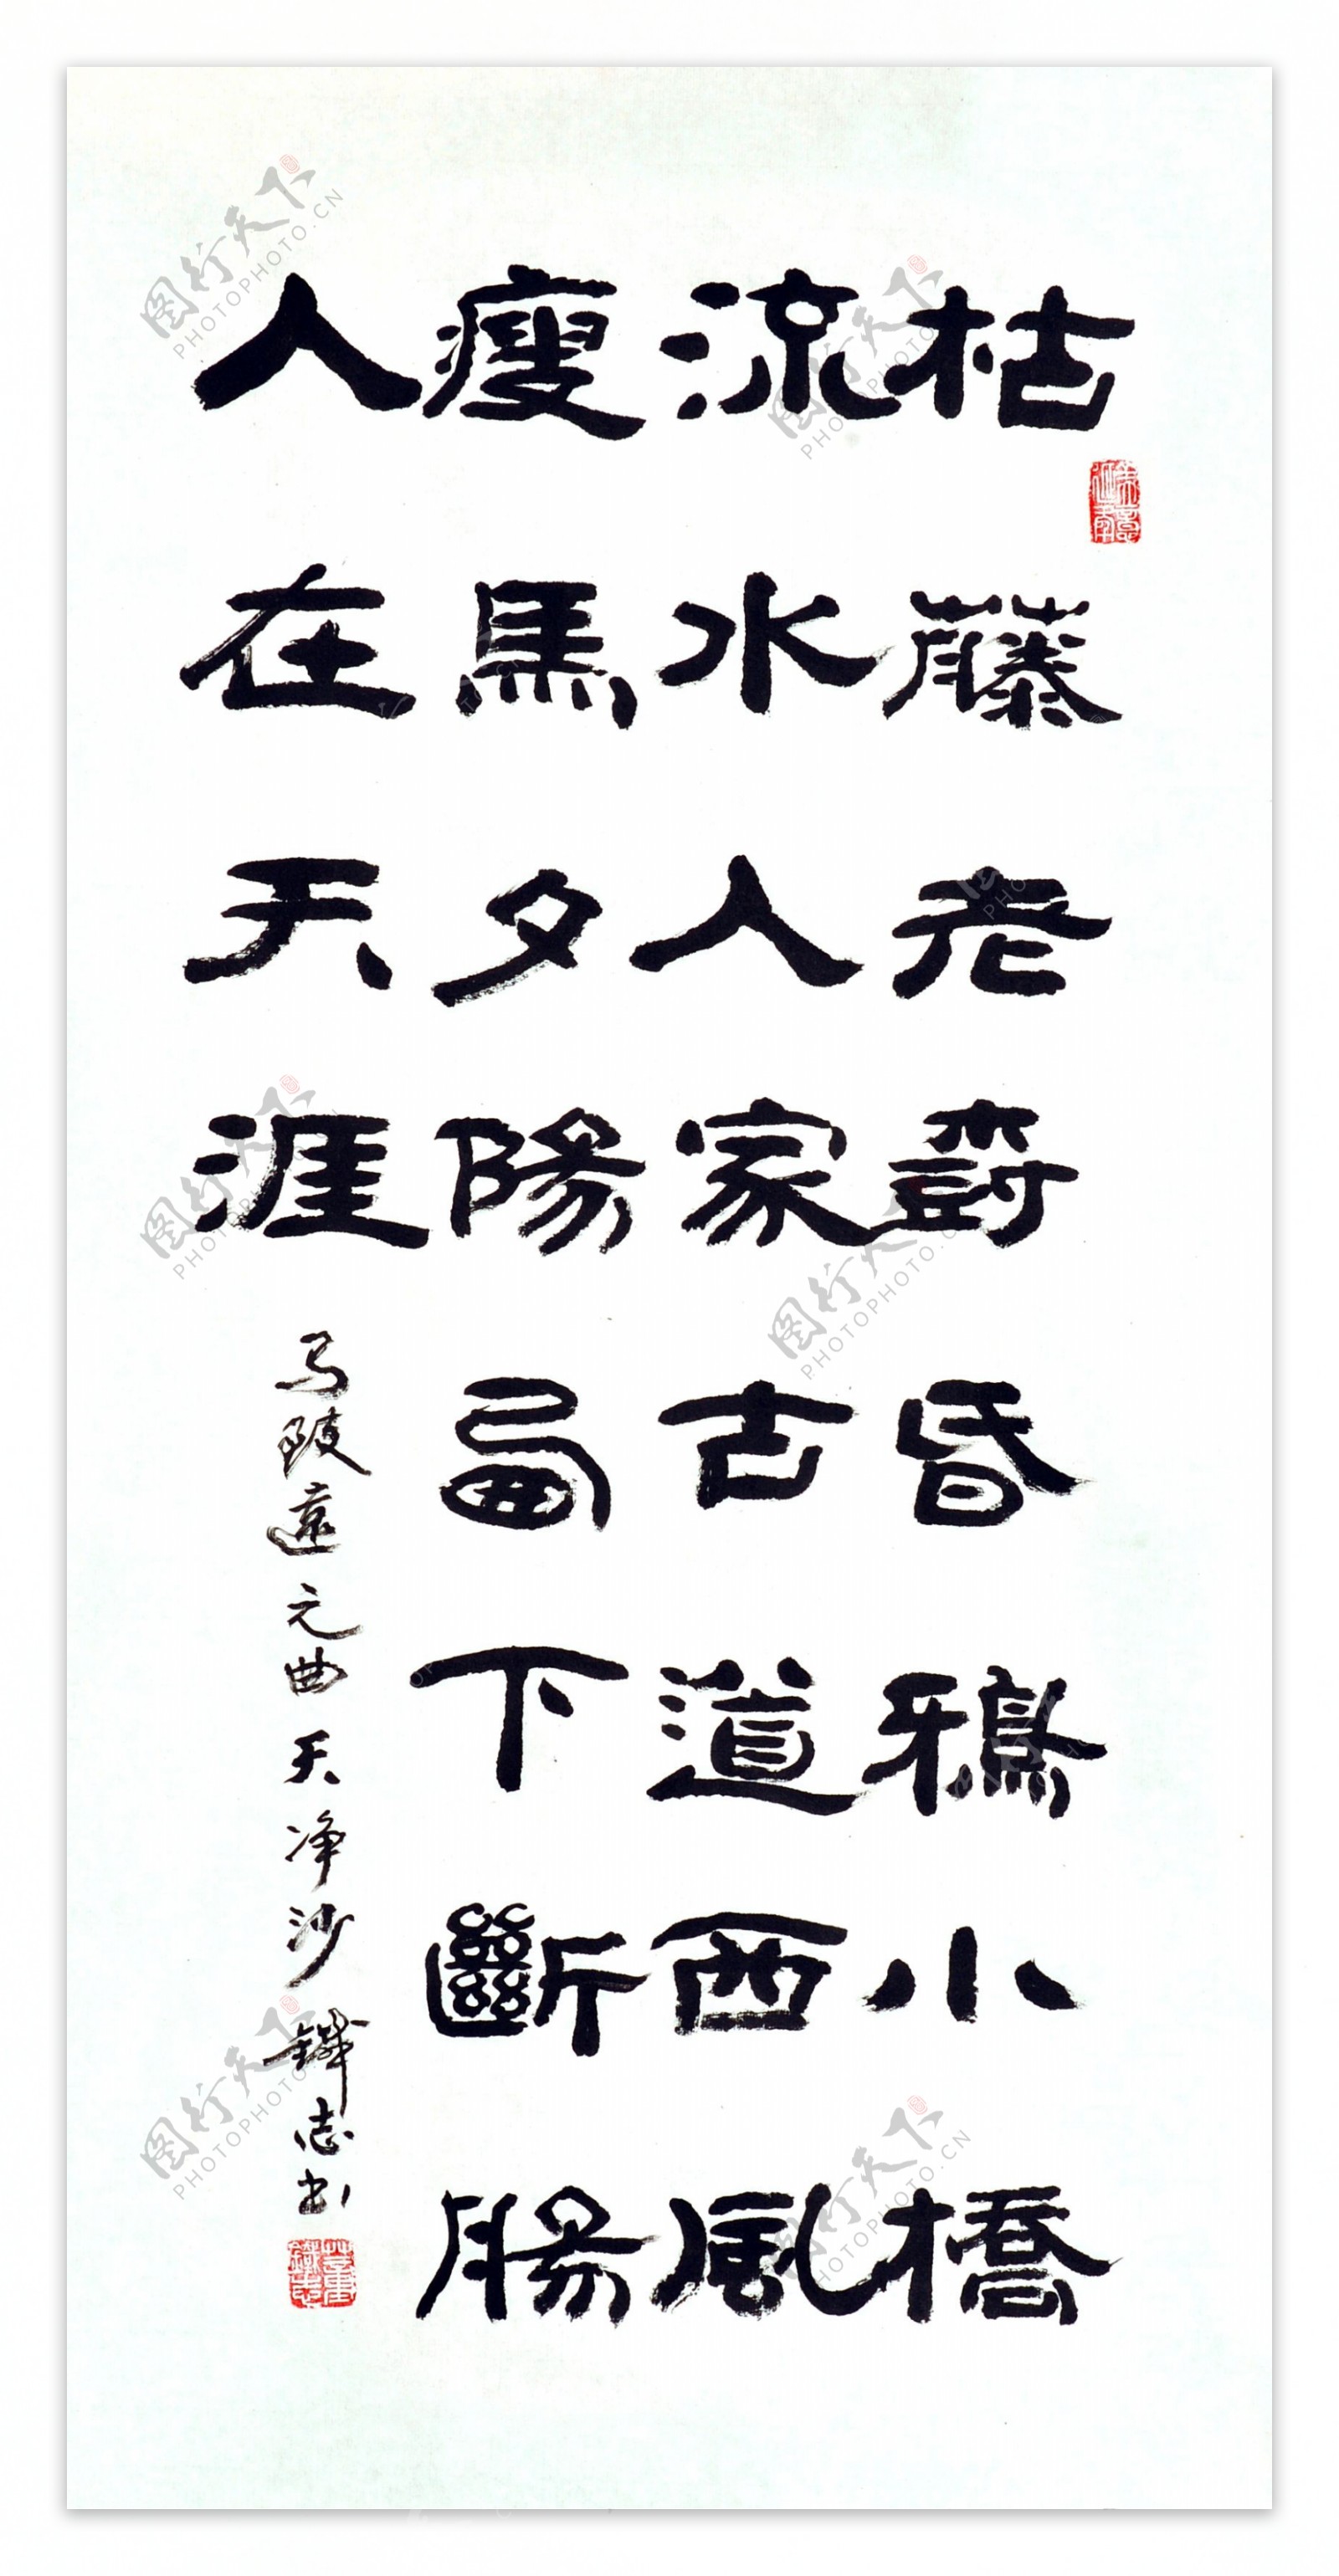 枯藤老樹昏鴉小橋
流水人家古道西風
瘦馬夕陽西下斷腸
人在天涯
马致遠元曲天净沙 鐵志书
图行天下
PHOTOPHOTO.CN